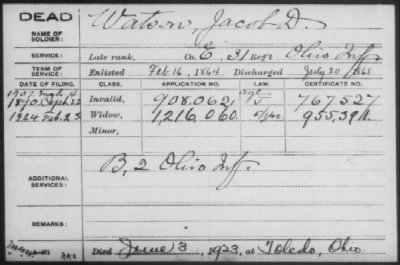 DEAD
NAME OF SOLDIER: Watson, Jacob D.
SERVICE: Late rank, Co. E, 31 Reg't Ohio Inf.
TERM OF SERVICE: Enlisted Feb 16, 1864 Discharged July 20, 1865
DATE OF FILING. CLASS. APPLICATION NO. LAW. CERTIFICATE NO.
1907
1890 Sept 22 Invalid, 908.062, 767.527
1924 Widow, 1,216,060. 955.391.
Minor,
ADDITIONAL SERVICES: B, 2 Ohio Inf.
REMARKS:
Died June 13, 1923, at Toledo, Ohio